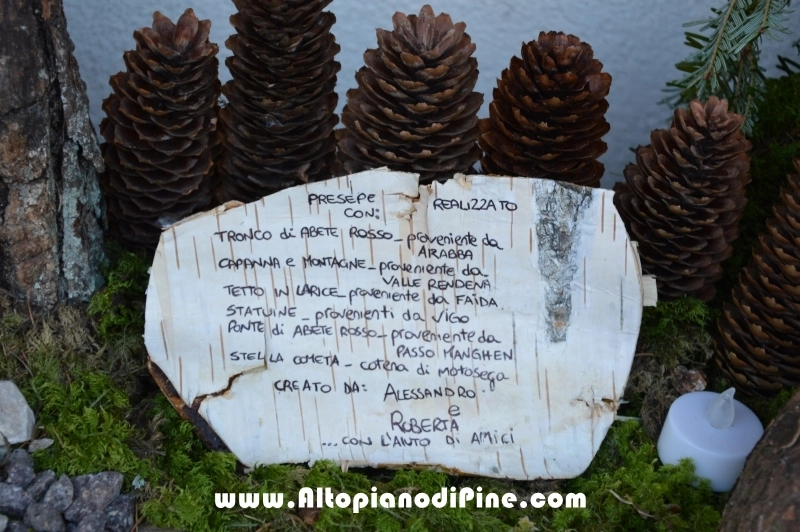 PRESEPE REALIZZATO
CON:
TRONCO di ABETE ROSSO_proveniente da
ARABBA
CAPANNA e MONTAGNE_proveniente da
VALLE RENDENA
TETTO IN LARICE_proveniente da FAIDA
STATUINE_provenienti da VIGO
PONTE di ABETE ROSSO_proveniente da
PASSO MANGHEN
STELLA COMETA_catena di motosega
CREATO DA: ALESSANDRO
e
ROBERTA
...CON L'AIUTO DI AMICI
www.AltopianodiPine.com